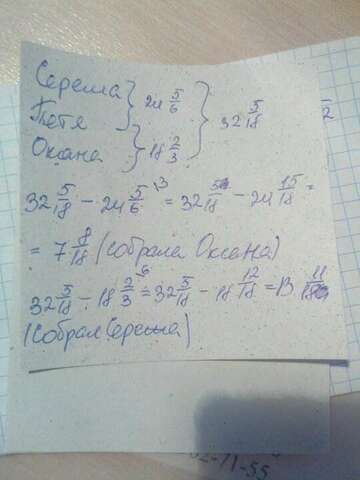 Сережа } 24 5/6 } 32 5/18
Петя
Оксана } 18 2/3
32 5/18 - 24 5/6 ³ = 32 5/18 - 24 15/18 =
= 7 8/18 (собрала Оксана)
32 5/18 - 18 2/3 ⁶ = 32 5/18 - 18 12/18 = 13 11/18
(собрал Сережа)